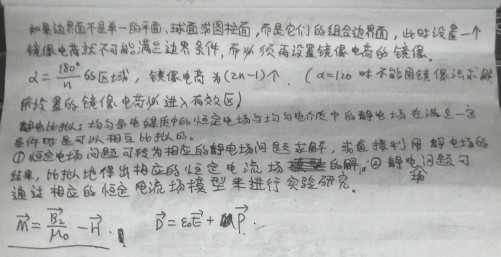 如果边界面不是单一的平面、球面或圆柱面,而是它们的组合边界面,此时设置一个
镜像电荷就不可能满足边界条件,而必须再设置镜像电荷的镜像.
α=180°/n 的区域,镜像电荷为(2n-1)个. (α=120 时不能用镜像法求解
所设置的镜像电荷必进入有效区)
静电比拟:均匀导电媒质中的恒定电场与均匀电介质中的静电场在满足一定
条件时是可以相互比拟的.
①恒定电场问题可转为相应的静电场问题求解,或直接利用静电场的
结果,比拟地得出相应的恒定电流场的解.②静电问题可
通过相应的恒定电流场模型来进行实验研究.
M⃗ = B⃗/μ₀ - H⃗. D⃗ = ε₀E⃗ + P⃗.